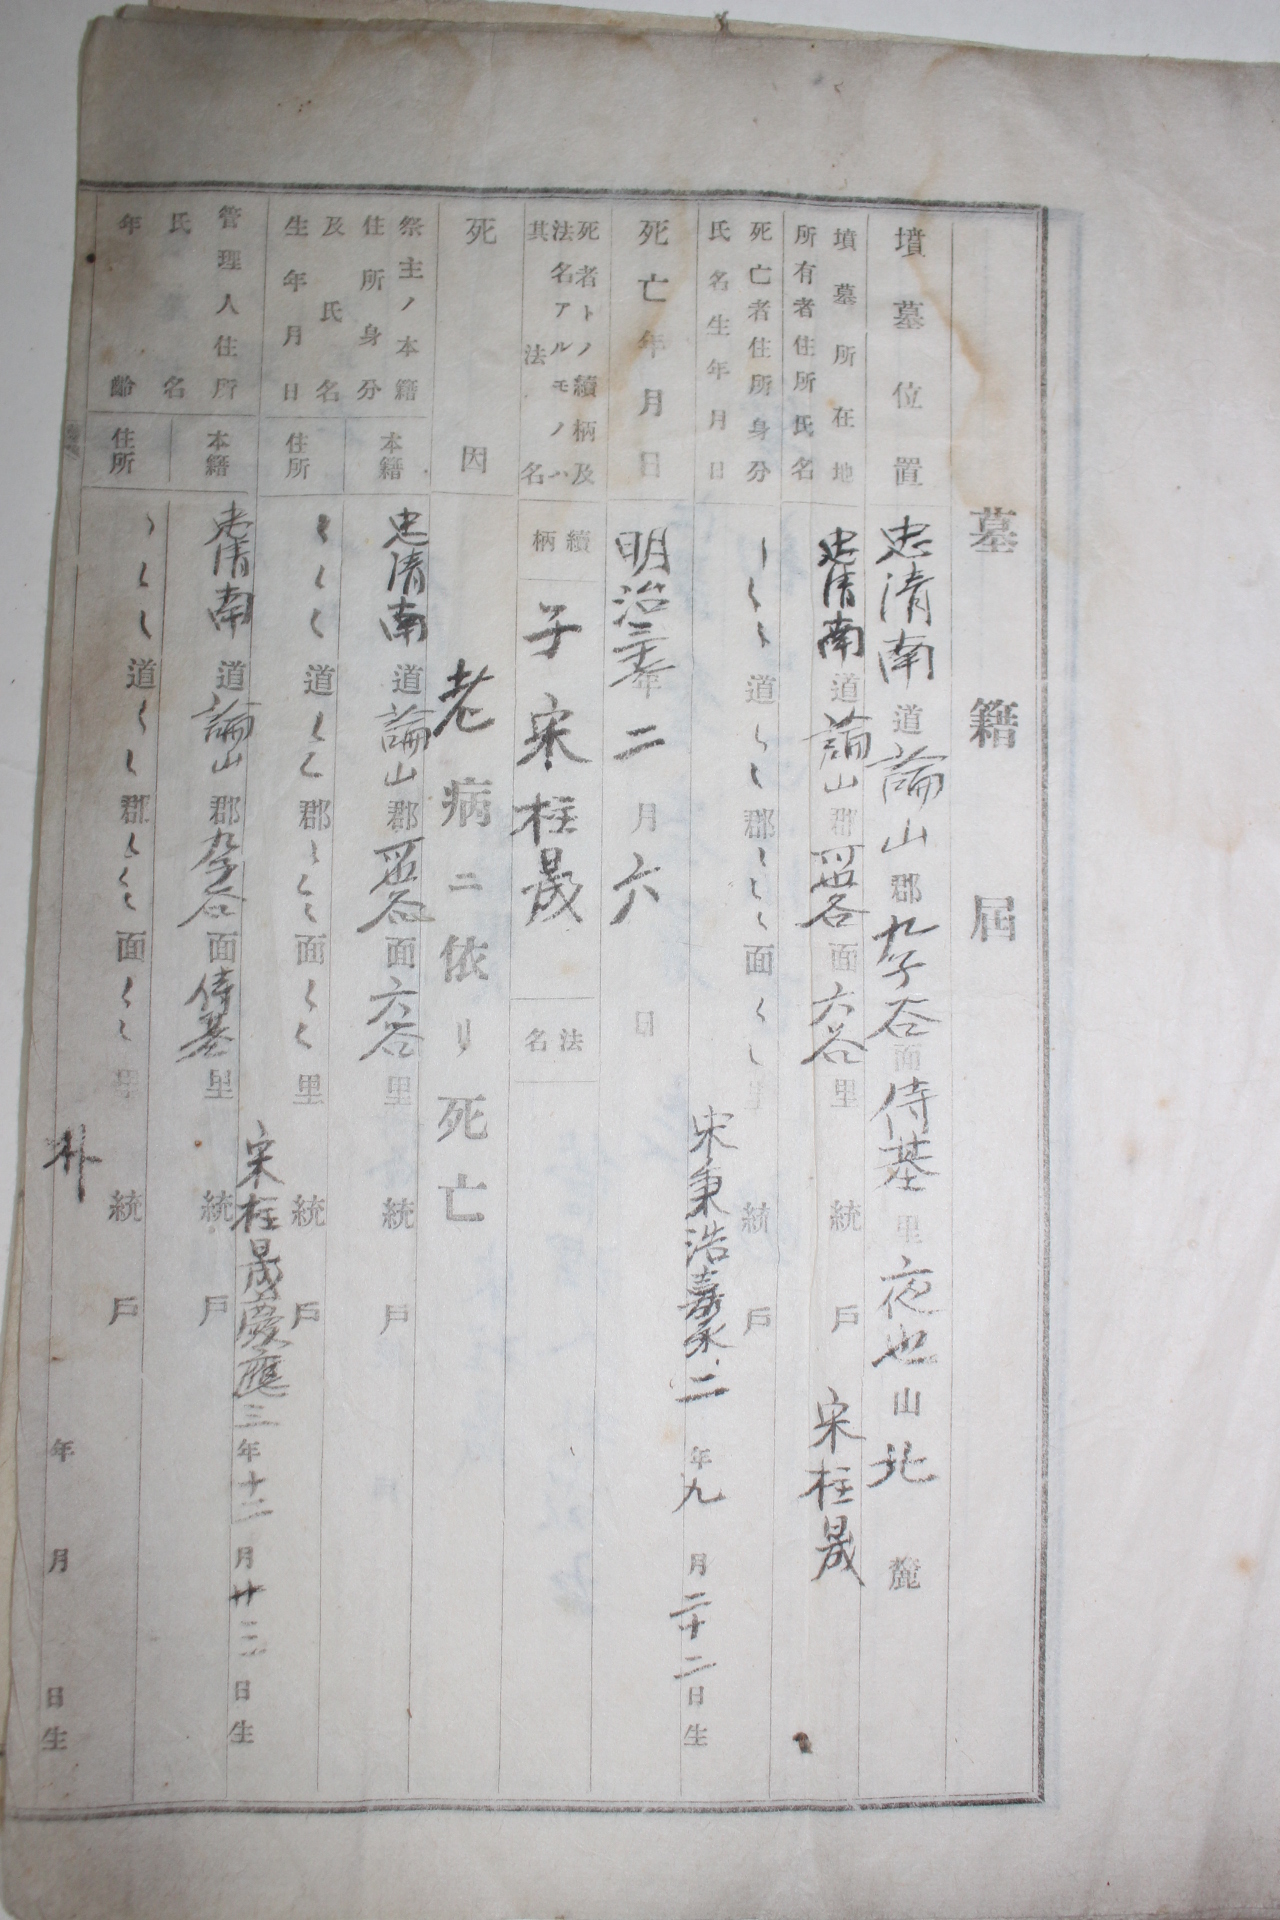 墓籍届
墳墓位置
忠清南道論山郡九子谷面侍墓里夜也山北麓
墳墓所在地
所有者住所氏名
忠清南道論山郡谷面六谷里統戶宋柱晟
死亡者住所身分
氏名生年月日
〻〻〻道〻〻郡〻〻〻面〻〻里統戶
宋秉浩嘉永二年九月二十二日生
死亡年月日
明治年二月六日
死者トノ續柄及
法名アルモノハ
其法名
續柄
子宋柱晟
法名
死因
老病ニ依リ死亡
祭主ノ本籍
住所身分
及氏名
生年月日
本籍
忠清南道論山郡谷面六谷里統戶
住所
〻〻〻道〻〻郡〻〻〻面〻〻里統戶
宋柱晟慶應三年十二月廿二日生
管理人住所
氏名
年齢
本籍
忠清南道論山郡九子谷面侍墓里統戶
住所
〻〻〻道〻〻郡〻〻〻面〻〻里統戶
朴
年月日生